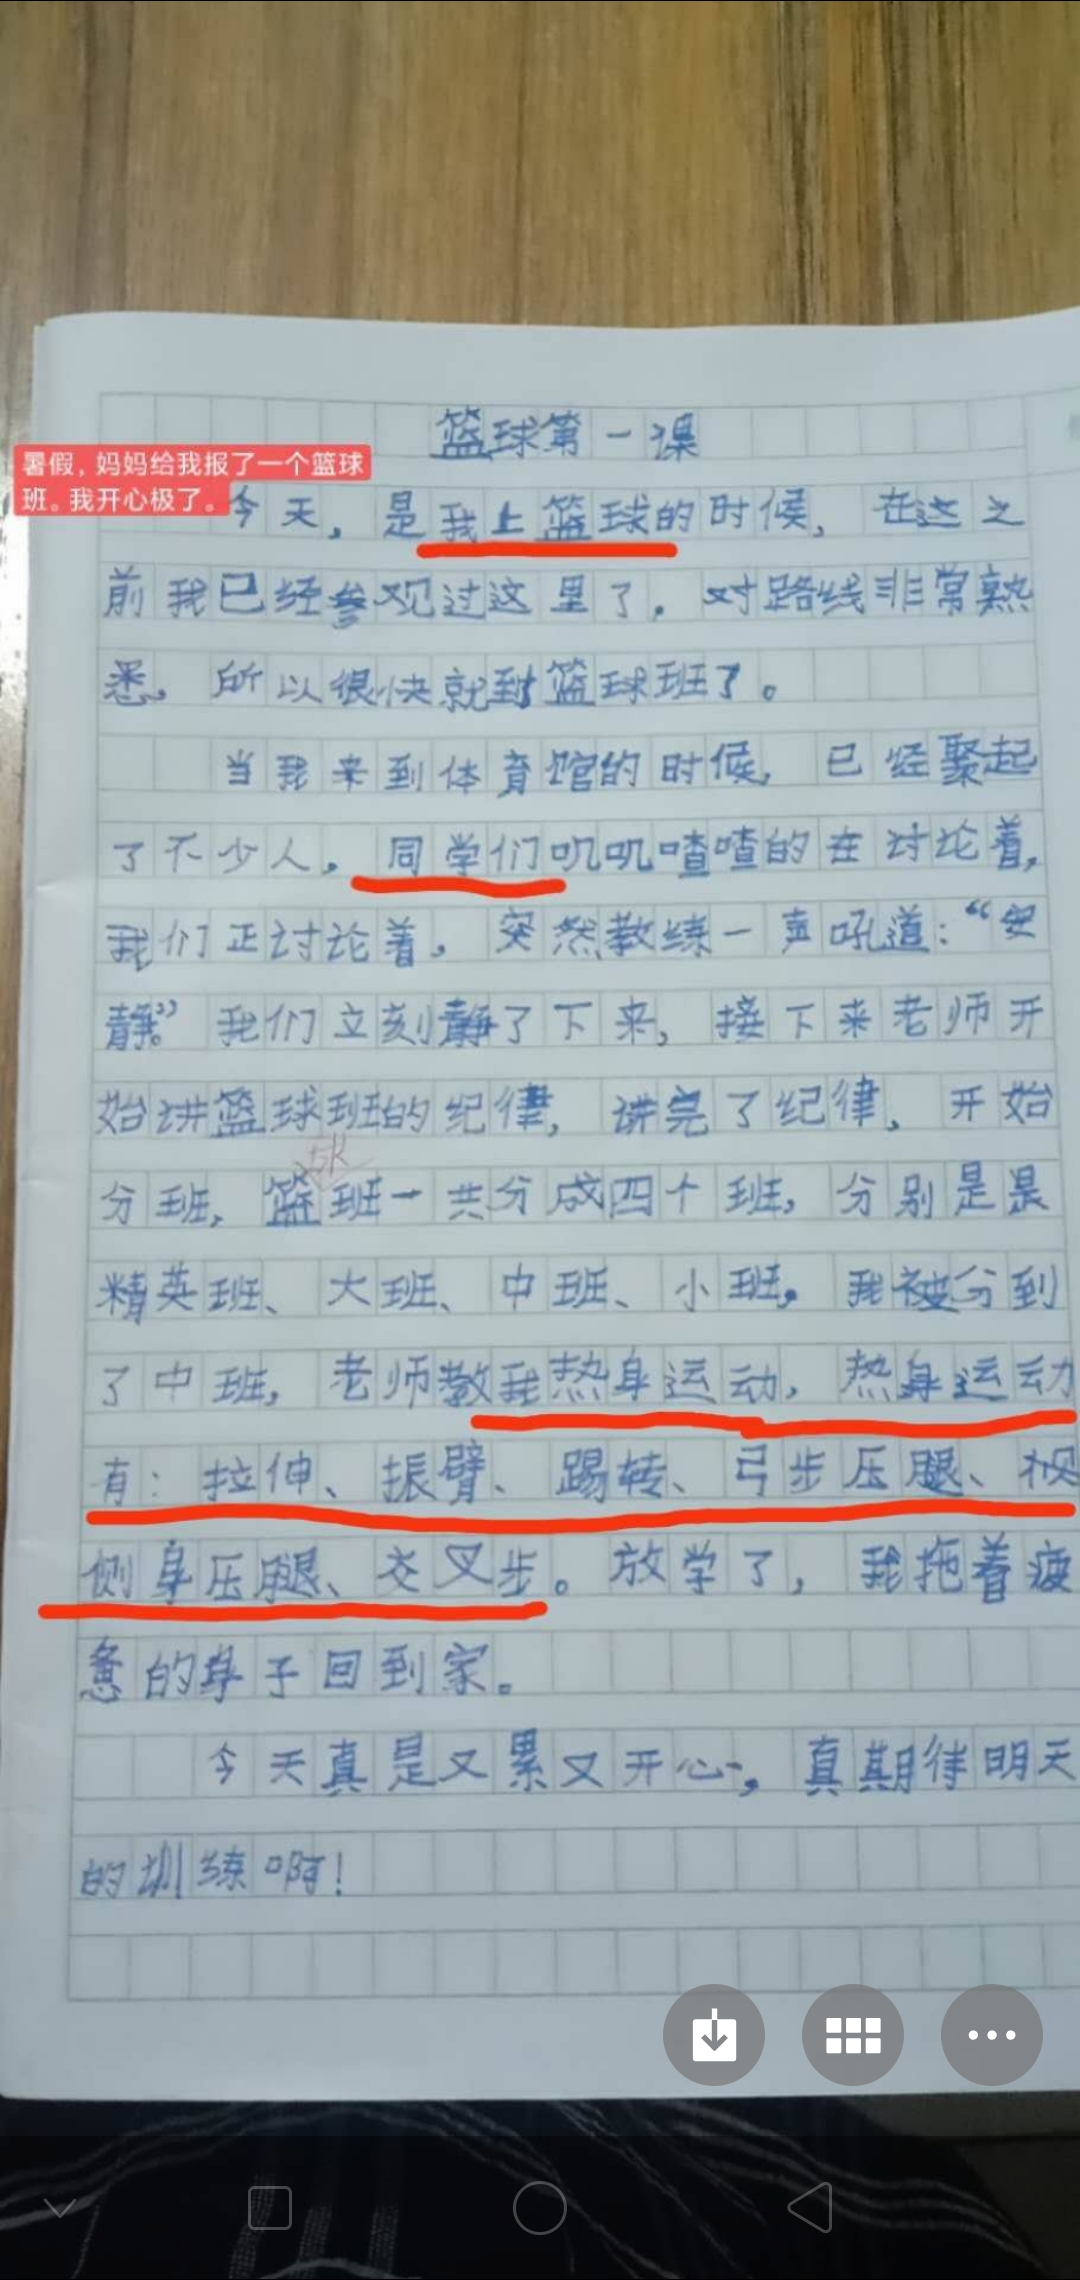 篮球第一课
暑假，妈妈给我报了一个篮球
班。我开心极了。
今天，是我上篮球的时候，在这之
前我已经参观过这里了，对路线非常熟
悉，所以很快就到篮球班了。
当我来到体育馆的时候，已经聚起
了不少人，同学们叽叽喳喳的在讨论着，
我们正讨论着，突然教练一声吼道：“安
静。”我们立刻静了下来，接下来老师开
始讲篮球班的纪律，讲完了纪律，开始
球
分班，篮班一共分成四个班，分别是是
精英班、大班、中班、小班。我被分到
了中班，老师教我热身运动，热身运动
有：拉伸、振臂、踢转、弓步压腿、
侧身压腿、交叉步。放学了，我拖着疲
惫的身子回到家。
今天真是又累又开心，真期待明天
的训练啊！